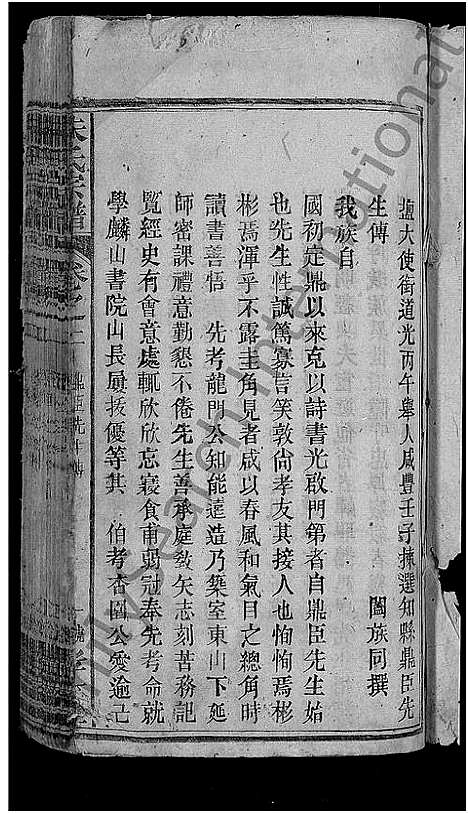 鹽大使銜道光丙午舉人咸豐壬子揀選知縣鼎臣先
生傳
闔族同撰
我族自
國初定鼎以來克以詩書光啟門第者自鼎臣先生始
也先生性誠篤寡言笑敦尚孝友其接人也恂恂焉彬
彬焉渾乎不露圭角見者咸以春風和氣目之總角時
讀書善悟 先考龍門公知能遠造乃築室東山下延
師密課禮意勤懇不倦先生善承庭教矢志刻苦務記
覽經史有會意處輒欣欣忘寢食甫弱冠奉先考命就
學麟山書院山長屢拔優等其 伯考杏園公愛逾己
朱氏宗譜
卷之
鼎臣先生傳
Familysearch International